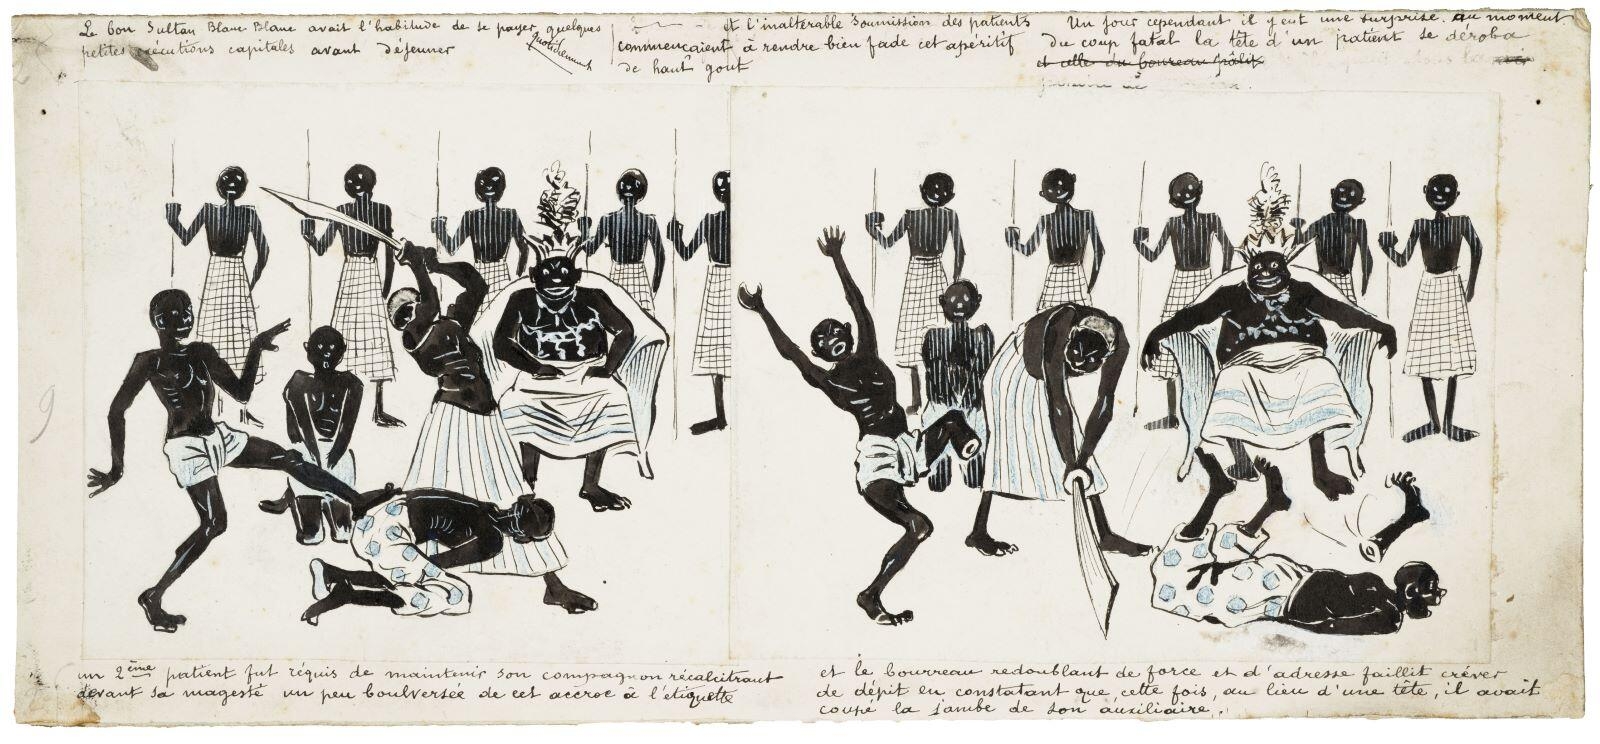 Le bon Sultan Blanc Blanc avait l'habitude de se payer quelques
petites exécutions capitales avant déjeuner
quotidiennement
et l'inalterable soumission des patients
commencaient à rendre bien fade cet apéritif
de haut gout
Un jour cependant il y eut une surprise. au moment
du coup fatal la tête d'un patient se déroba
et celle du boureau
un 2ème patient fut réquis de maintenir son compagnon récalcitrant
devant sa magesté un peu boulversée de cet accroc à l'étiquette
et le bourreau redoublant de force et d'adresse faillit créver
de dépit en constatant que cette fois, au lieu d'une tête, il avait
coupé la jambe de son auxiliaire.
9